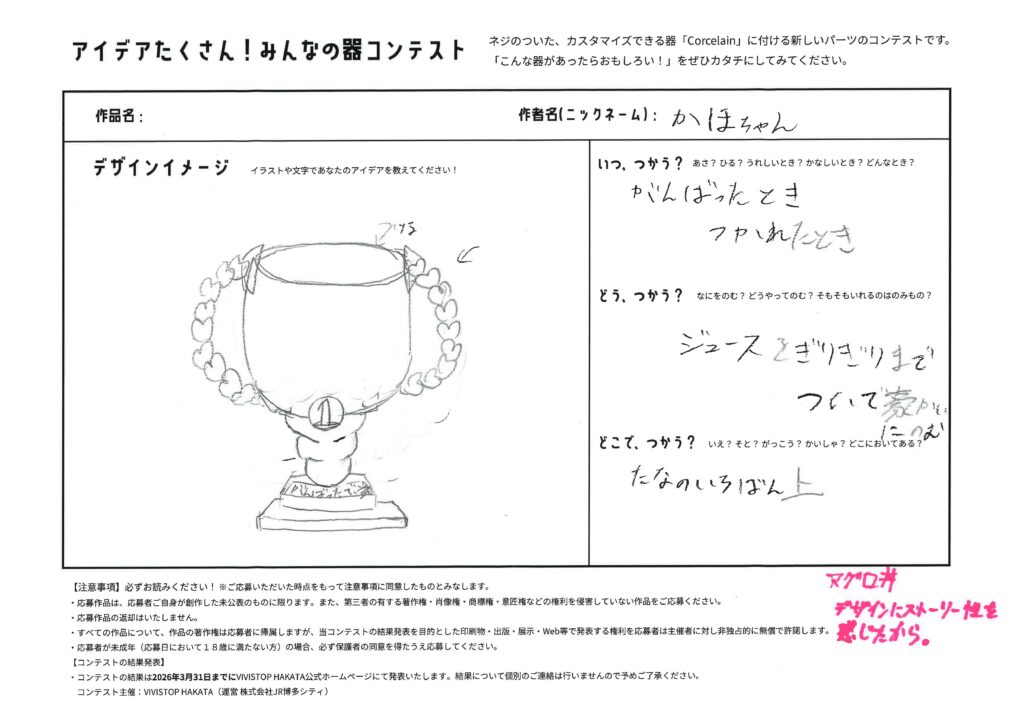 アイデアたくさん！みんなの器コンテスト
ネジのついた、カスタマイズできる器「Corcelain」に付ける新しいパーツのコンテストです。
「こんな器があったらおもしろい！」をぜひカタチにしてみてください。
作品名：
作者名(ニックネーム)： かほちゃん
デザインイメージ イラストや文字であなたのアイデアを教えてください！
つける
1
がんばったで賞
いつ、つかう？ あさ？ひる？うれしいとき？かなしいとき？どんなとき？
がんばったとき
つかれたとき
どう、つかう？ なにをのむ？どうやってのむ？そもそもいれるのはのみもの？
ジュースをぎりぎりまで
ついで豪かい
にのむ
どこで、つかう？ いえ？そと？がっこう？かいしゃ？どこにおいてある？
たなのいちばん上
マグロ丼
デザインにストーリー性を
感じたから。
【注意事項】必ずお読みください！※ご応募いただいた時点をもって注意事項に同意したものとみなします。
・応募作品は、応募者ご自身が創作した未公表のものに限ります。また、第三者の有する著作権・肖像権・商標権・意匠権などの権利を侵害していない作品をご応募ください。
・応募作品の返却はいたしません。
・すべての作品について、作品の著作権は応募者に帰属しますが、当コンテストの結果発表を目的とした印刷物・出版・展示・Web等で発表する権利を応募者は主催者に対し非独占的に無償で許諾します。
・応募者が未成年（応募日において１８歳に満たない方）の場合、必ず保護者の同意を得たうえ応募してください。
【コンテストの結果発表】
・コンテストの結果は2026年3月31日までにVIVISTOP HAKATA公式ホームページにて発表いたします。結果について個別のご連絡は行いませんので予めご了承ください。
コンテスト主催：VIVISTOP HAKATA（運営 株式会社JR博多シティ）